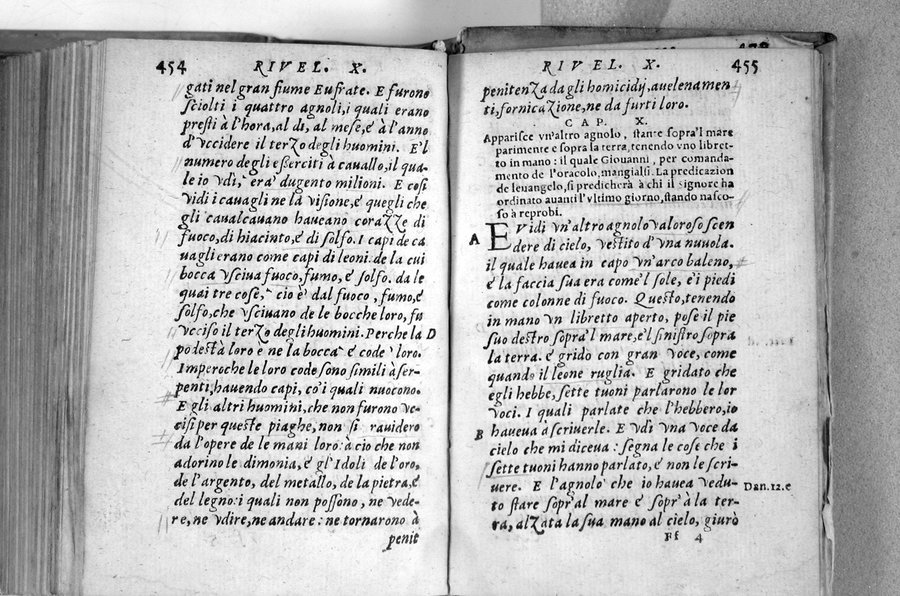 454 RIVEL. X.
gati nel gran fiume Eufrate. E furono
sciolti i quattro agnoli, i quali erano
presti à l'hora, al dì, al mese, e à l'anno
d'vccidere il terzo degli huomini. E'l
numero degli esserciti à cauallo, il qua-
le io vdì, era dugento milioni. E così
vidi i cauagli ne la visione, e quegli che
gli caualcauano haueano corazze di
fuoco, di hiacinto, e di solfo. I capi de ca
uagli erano come capi di leoni. de la cui
bocca vsciua fuoco, fumo, e solfo. da le
quai tre cose, cio è dal fuoco, fumo, e
solfo, che vsciuano de le bocche loro, fu
vcciso il terzo degli huomini. Perche la D
podestà loro è ne la bocca e code loro.
Imperoche le loro code sono simili à ser-
penti, hauendo capi, co'i quali nuocono.
E gli altri huomini, che non furono vc-
cisi per queste piaghe, non si rauidero
da l'opere de le mani loro: à cio che non
adorino le dimonia, e gl'Idoli de l'oro,
de l'argento, del metallo, de la pietra, e
del legno: i quali non possono, ne vede-
re, ne vdire, ne andare: ne tornarono à
penit
RIVEL. X. 455
penitenza da gli homicidij, auelenamen
ti, fornicazione, ne da furti loro.
CAP. X.
Apparisce vn'altro agnolo, stante sopra'l mare
parimente e sopra la terra, tenendo vno libret-
to in mano: il quale Giouanni, per comanda-
mento de l'oracolo, mangiassi. La predicazion
de leuangelo, si predicherà à chi il signore ha
ordinato auanti l'vltimo giorno, stando nasco-
so à reprobi.
A E Vidi vn'altro agnolo valoroso scen
dere di cielo, vestito d'vna nuuola.
il quale hauea in capo vn'arco baleno,
e la faccia sua era come'l sole, e'i piedi
come colonne di fuoco. Questo, tenendo
in mano vn libretto aperto, pose il pie
suo destro sopra'l mare, e'l sinistro sopra
la terra. e gridò con gran voce, come
quando il leone ruglia. E gridato che
egli hebbe, sette tuoni parlarono le lor
voci. I quali parlate che l'hebbero, io
B haueua à scriuerle. E vdì vna voce da
cielo che mi diceua: segna le cose che i
sette tuoni hanno parlato, e non le scri-
uere. E l'agnolo che io hauea vedu- Dan.12.e
to stare sopr'al mare e sopr'à la ter-
ra, alzata la sua mano al cielo, giurò
Ff 4